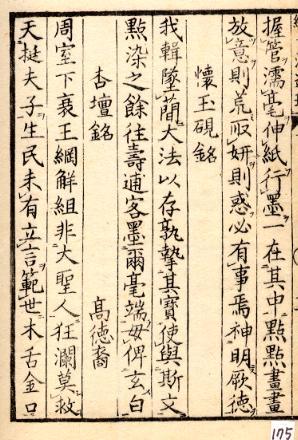 握管濡毫伸紙行墨一在其中點點畫畫
放意則荒取妍則惑必有事焉神明厥德
懷玉硯銘
我輯墜蕳大法以存孰摯其寶使與斯文
點染之餘往壽逋客墨爾毫端毋俾玄白
杏壇銘
高德裔
周室下衰王綱解組非大聖人狂瀾莫救
天挺夫子生民未有立言範世木舌金口
175